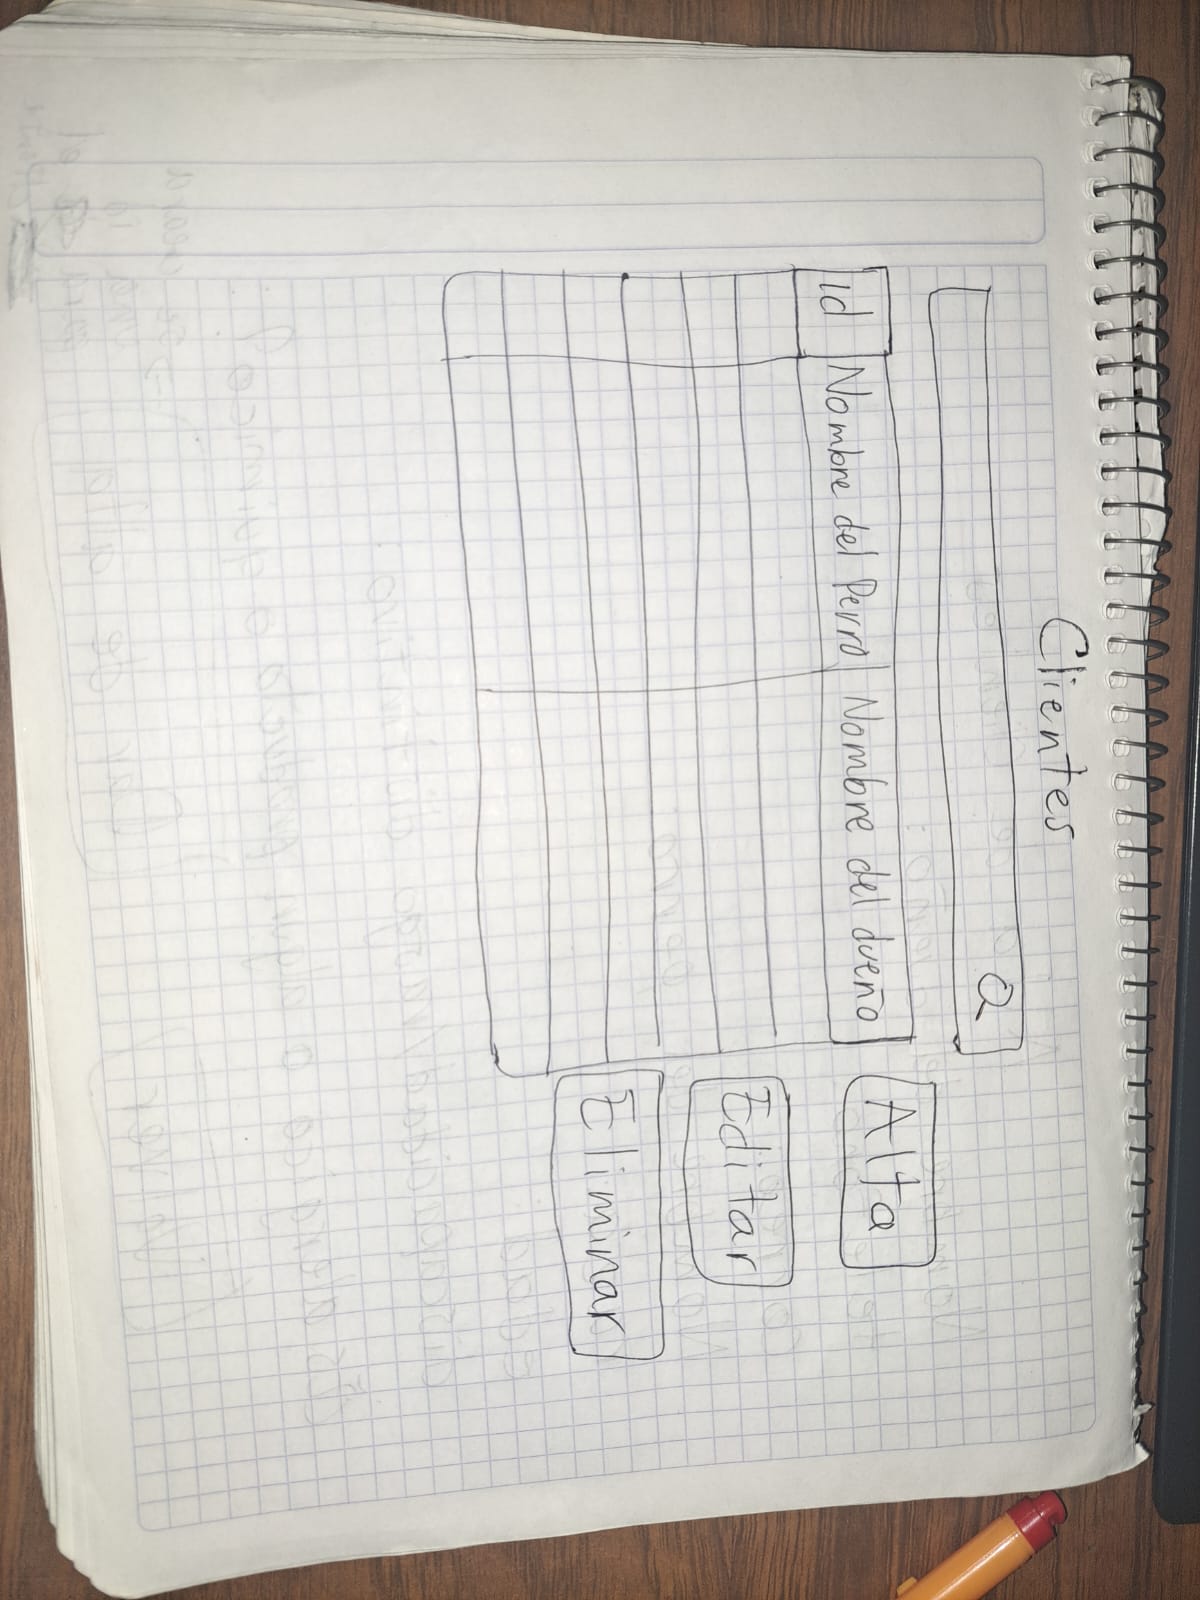 Clientes
id Nombre del Perro Nombre del dueño
Alta
Editar
Eliminar